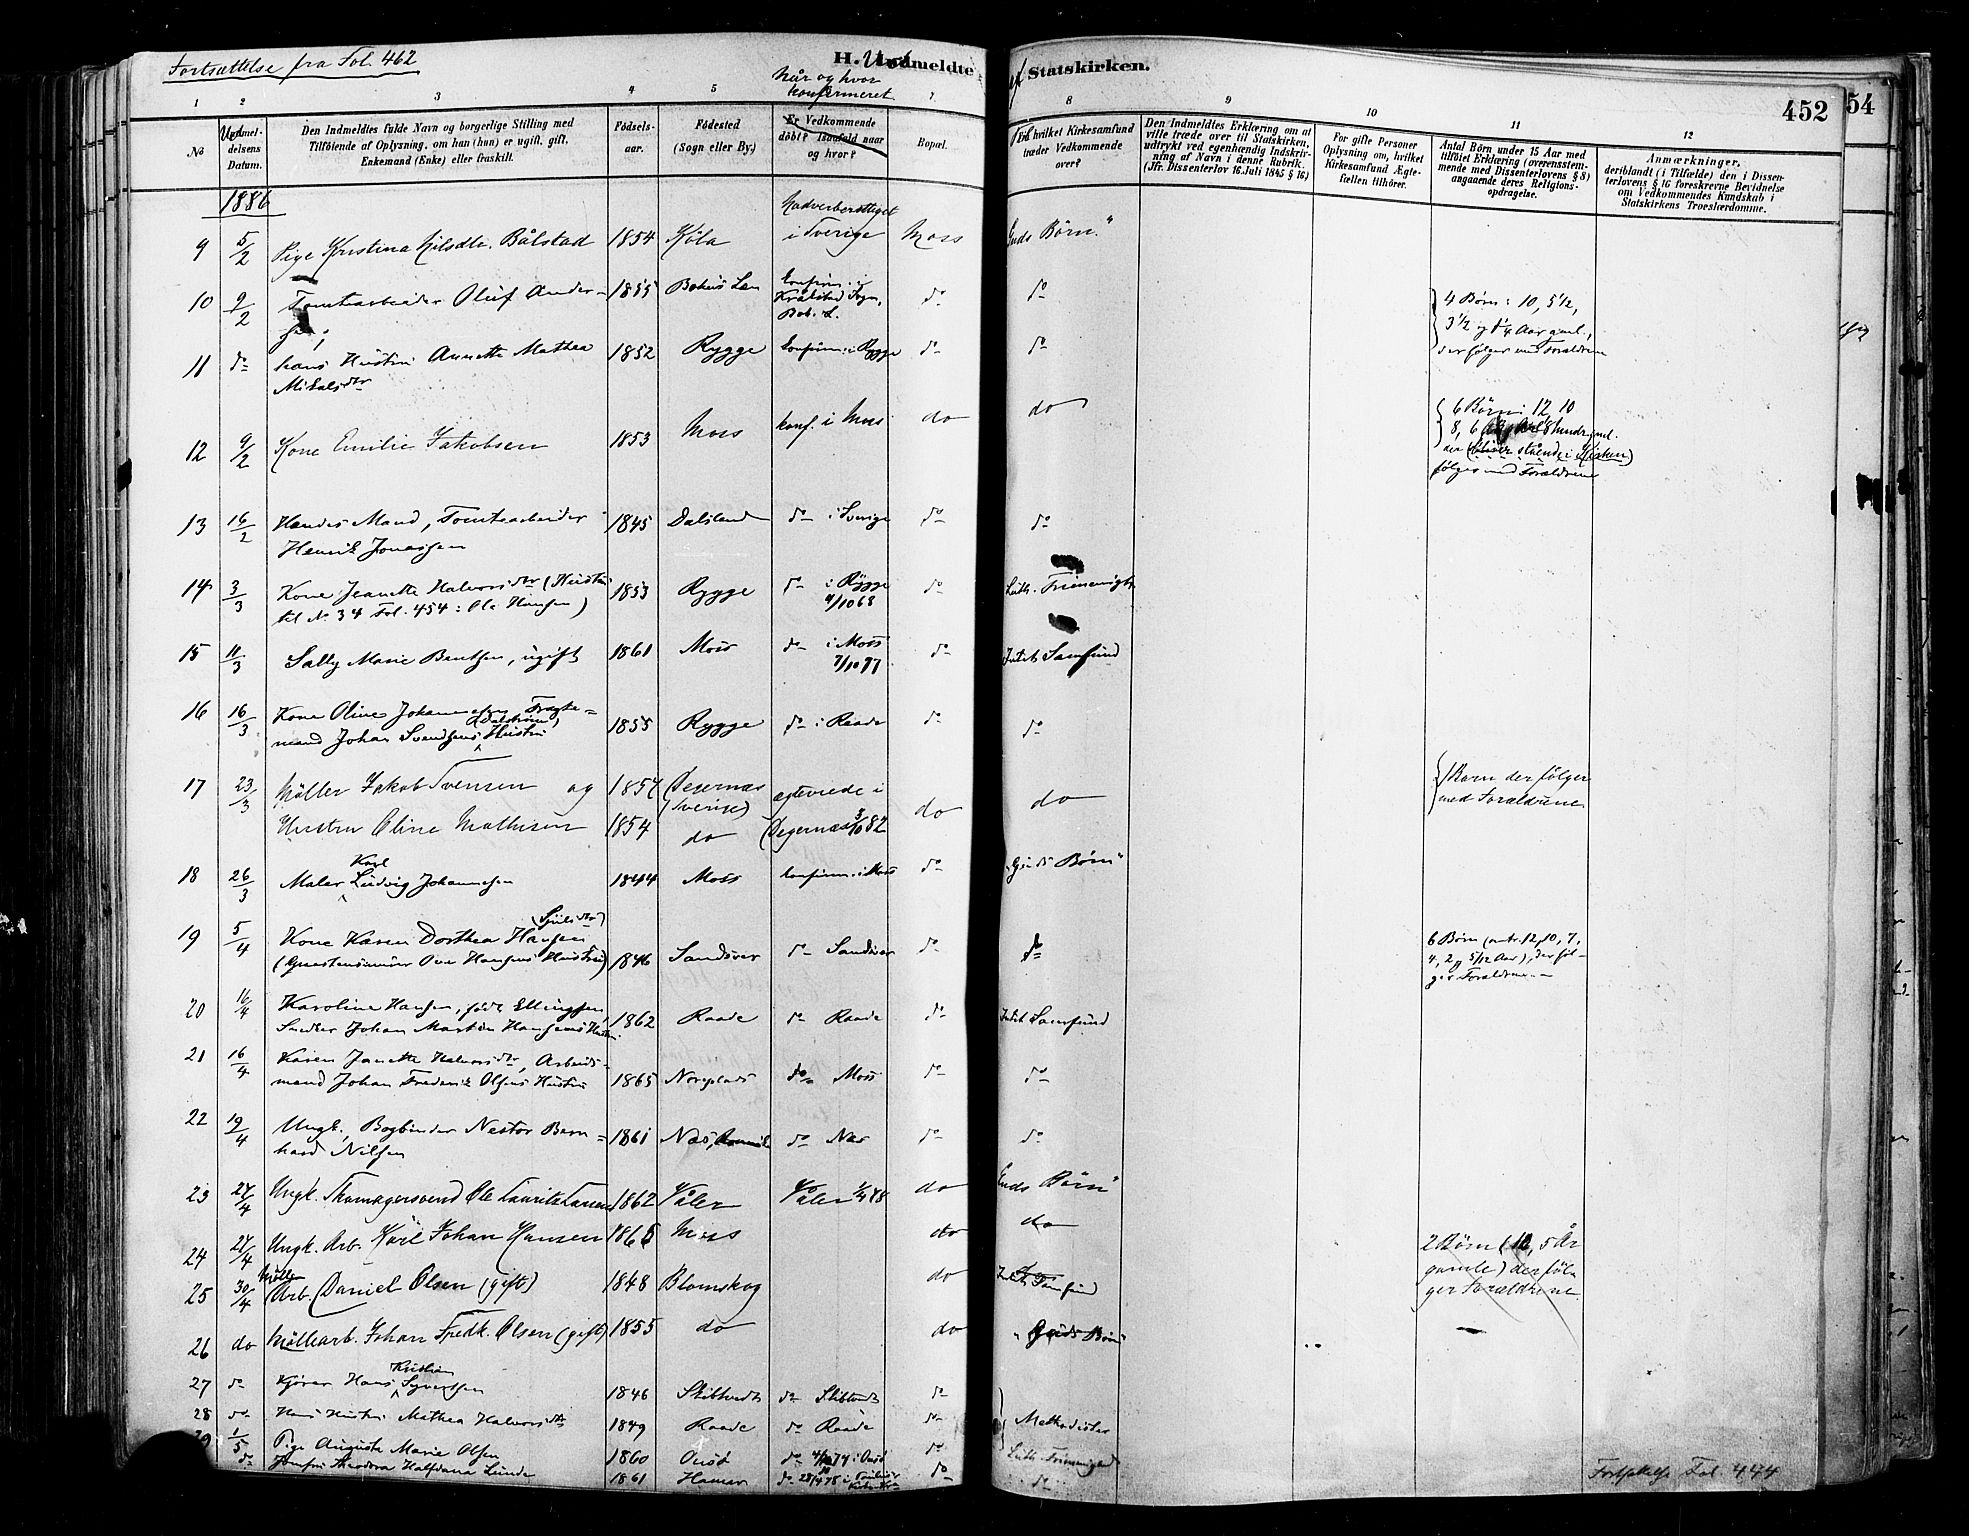 Fortsættelse fra Fol. 462
H. Udmeldte af Statskirken.
452
54
1 2 3 4 5 7 8 9 10 11 12
No
Udmeldelsens Datum.
Den Indmeldtes fulde Navn og borgerlige Stilling med
Tilføiende af Oplysning, om han (hun) er ugift, gift,
Enkemand (Enke) eller fraskilt.
Fødselsaar.
Fødested
(Sogn eller By.)
Når og hvor konfirmeret
Er Vedkommende
døbt? Isaafald naar
og hvor?
Bopæl.
Til hvilket Kirkesamfund
træder Vedkommende
over?
Den Indmeldtes Erklæring om at
ville træde over til Statskirken,
udtrykt ved egenhændig Indskrivning
af Navn i denne Rubrik.
(Jfr. Dissenterlov 16. Juli 1845 § 16)
For gifte Personer
Oplysning om, hvilket
Kirkesamfund Ægtefællen
tilhører.
Antal Børn under 15 Aar med
tilføiet Erklæring (overensstemmende
med Dissenterlovens § 8)
angaaende deres Religionsopdragelse.
Anmærkninger,
deriblandt (i Tilfælde) den i Dissenterlovens
§ 16 foreskrevne Bevidnelse
om Vedkommendes Kundskab i
Statskirkens Troeslærdomme.
1886
9 5/2 Pige Kristina Nilsdtr. Bålstad 1854 Köla Nadverberettiget i Sverige Moss Guds Børn."
10 9/2 Tomtearbeider Oluf Andersen, 1855 Bohus Len konfirm. i Sogn, Boh. L. do do
4 Børn: 10, 5 1/2,
3 1/2 og 1/4 Aar gml.,
der følger med Forældrene
11 do hans Hustru Annette Mathea Mikalsdtr 1852 Rygge konfirm. i Rygge do do
12 9/2 Kone Emilie Jakobsen 1853 Moss konf. i Moss do do
6 Børn: 12, 10
8, 6
der stående i Kirken)
følger med Forældrene
13 16/2 Hendes Mand, Tomtearbeider Henrik Jonassen 1845 Dalsland do i Sverige do do
14 3/3 Kone Jeanette Halvorsdtr (Hustru til No 34 Fol. 454: Ole Hansen) 1853 Rygge do i Rygge 4/10 68 do Luth. Frimenighed
15 11/3 Sally Marie Bentsen, ugift 1861 Moss do i Moss 7/10 77 do Intet Samfund
16 16/3 Kone Oline Johannesen Fragtemand Johan Svendsens (Dalström) Hustru 1855 Rygge do i Raade do do
17 23/3 Møller Jakob Svensen og 1857 Degernæs (Sverige) ægteviede i do do
Hustru Oline Mathisen 1854 do Degernæs 3/10 82
1 Barn der følger
med Forældrene
18 26/3 Maler Karl Ludvig Johannesen 1844 Moss konfirm. i Moss do "Guds Børn"
19 5/4 Kone Karen Dorthea Hansen
(Ove Hansens Hustru) 1846 Sandsver do Sandsver do do
6 Børn (ontr. 12, 10, 7,
4, 2 og 5/12 Aar), der følger
Forældrene
20 16/4 Karoline Hansen, født Ellingsen, Snedker Johan Martin Hansens Hustru 1862 Raade do Raade do Intet Samfund
21 16/4 Karen Janette Halvorsdtr, Arbeidsmand Johan Frederik Olsens Hustru 1865 do Moss do do
22 19/4 Ungk., Bogbinder Nestor Bernhard Nilsen 1861 Næs, do Næs do do
23 27/4 Ungk. Skomagersvend Ole Lauritz Larsen 1862 Våler Våler 78 do Guds Børn"
24 27/4 Ungk. Arb. Karl Johan Hansen 1865 Moss do do
25 30/4 Møller Arb. Daniel Olsen (gift) 1848 Blomskog do Intet Samfund
2 Børn (10, 5 År
gamle) der følger
Forældrene
26 do Møllearb. Johan Fredk. Olsen (gift) 1855 do do "Guds Børn"
27 do Kjører Hans Kristian Syvertsen 1846 Skibtvedt do Skibtvedt do
28 do Hans Hustru Mathea Halvorsdtr 1849 Raade do Raade do Methodister
29 1/5 Pige Augusta Marie Olsen 1860 Onsø do 74 i Onsø do Luth. Frimenighed
do Jomfru Theodora Halfdana Lunde 1861 Hamar do do do
Fortsættelse Fol. 474